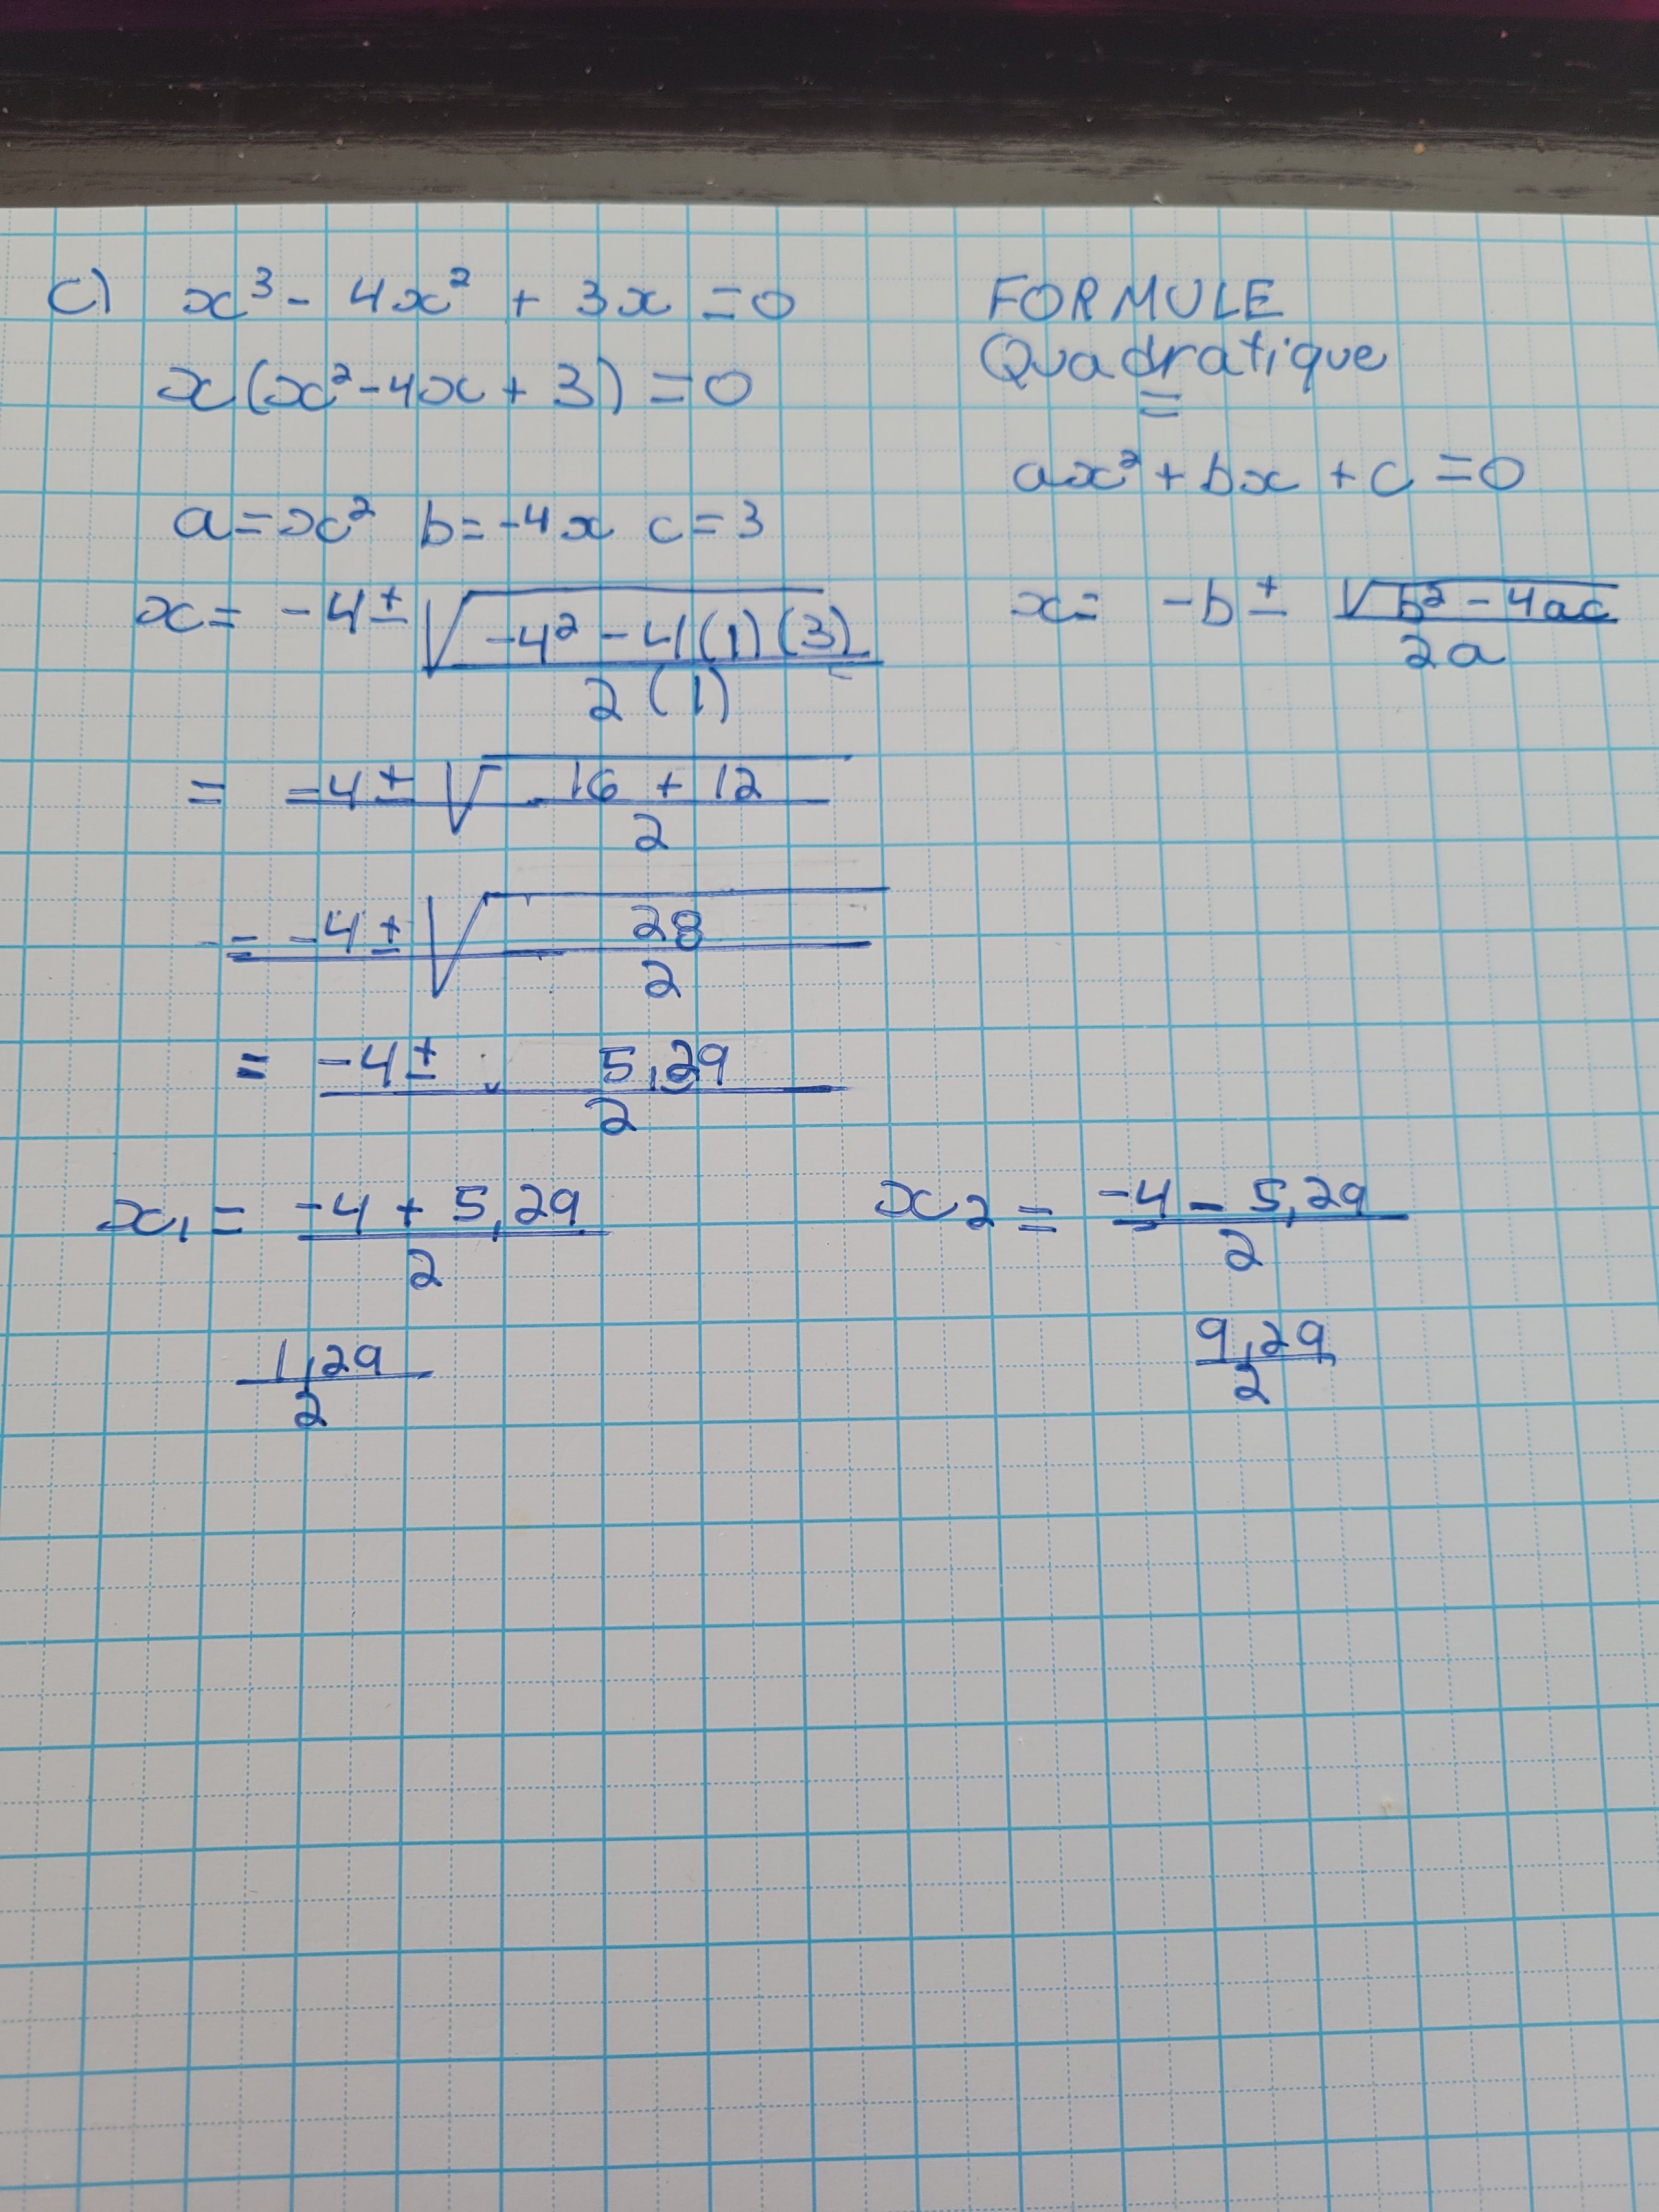 c) x³ - 4x² + 3x = 0
x(x² - 4x + 3) = 0
a = x² b = -4x c = 3
x = -4 ± √-4² - 4(1)(3)
2(1)
= -4 ± √16 + 12
2
= -4 ± √28
2
= -4 ± 5,29
2
x₁ = -4 + 5,29
2
1,29
2
FORMULE
Quadratique
=
ax² + bx + c = 0
x = -b ± √b² - 4ac
2a
x₂ = -4 - 5,29
2
9,29
2